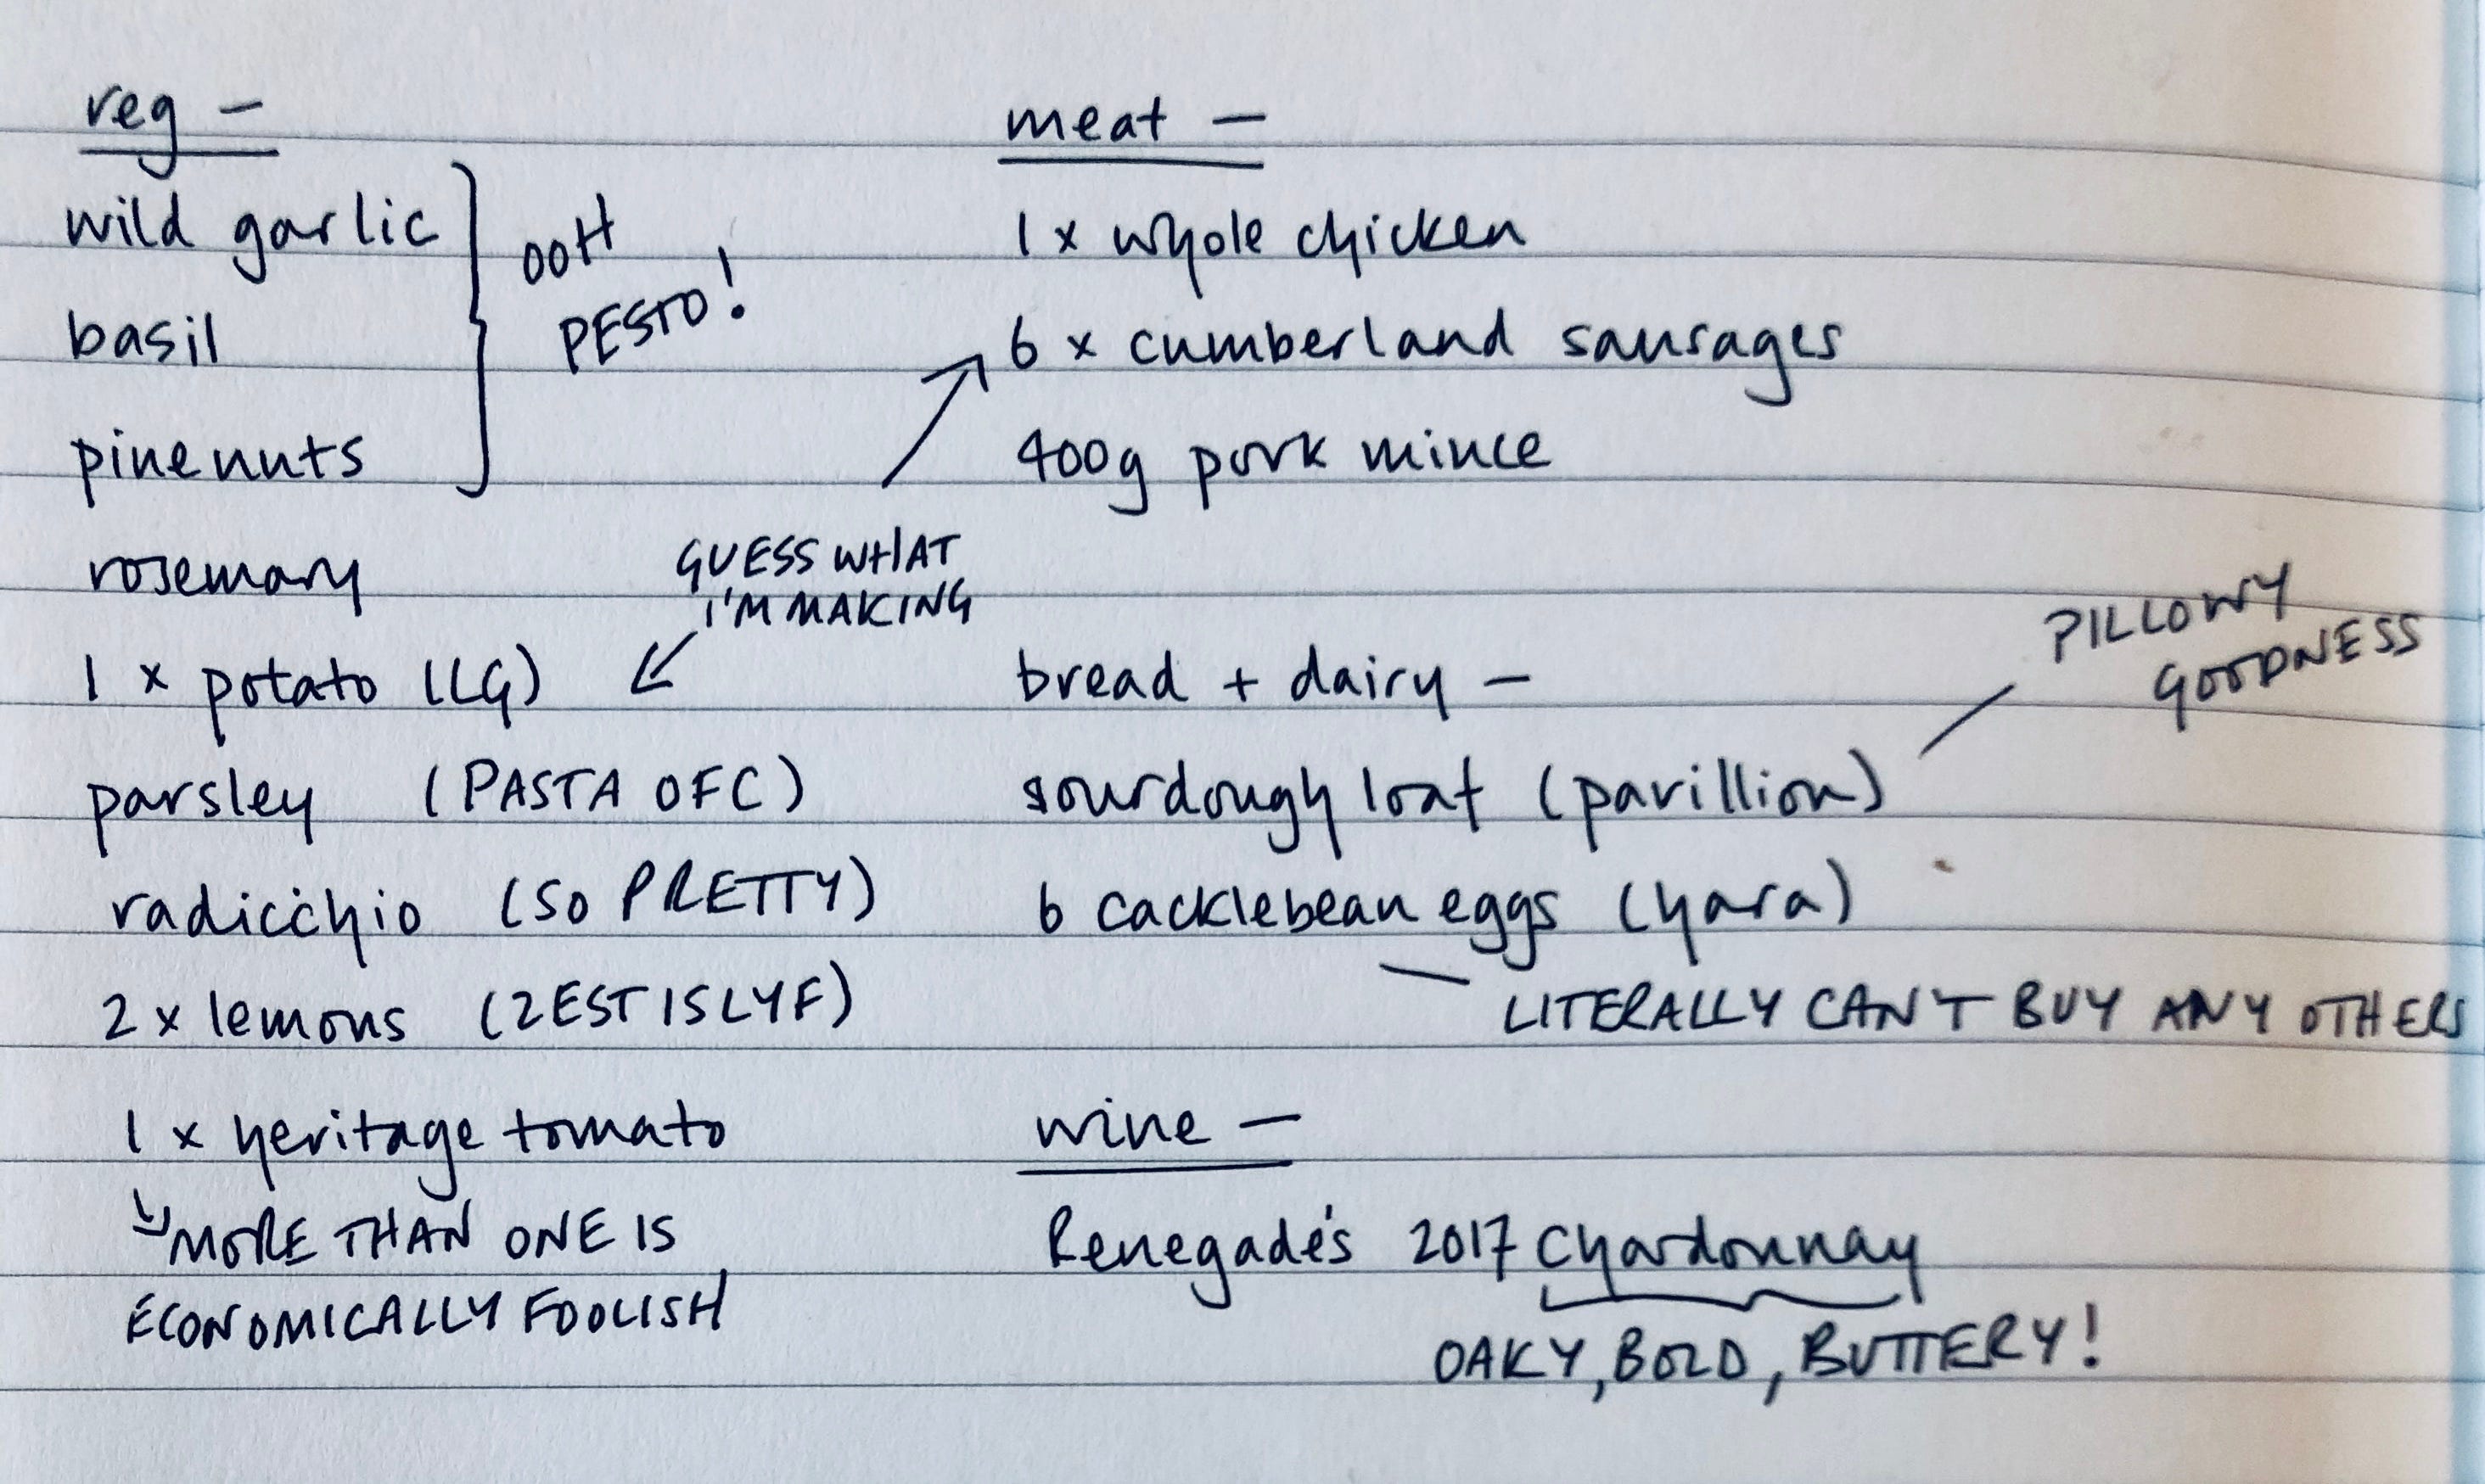 reg -
wild garlic
basil
pinenuts
OOH
PESTO!
rosemary
GUESS WHAT
I'M MAKING
1 x potato (LG)
parsley (PASTA OFC)
radicchio (SO PRETTY)
2 x lemons (ZEST IS LYF)
1 x heritage tomato
MORE THAN ONE IS
ECONOMICALLY FOOLISH
meat -
1 x whole chicken
6 x cumberland sausages
400g pork mince
bread + dairy -
PILLOWY
GOODNESS
sourdough loaf (pavillion)
6 cacklebean eggs (yara)
LITERALLY CAN'T BUY ANY OTHERS
wine -
Renegade's 2017 Chardonnay
OAKY, BOLD, BUTTERY!